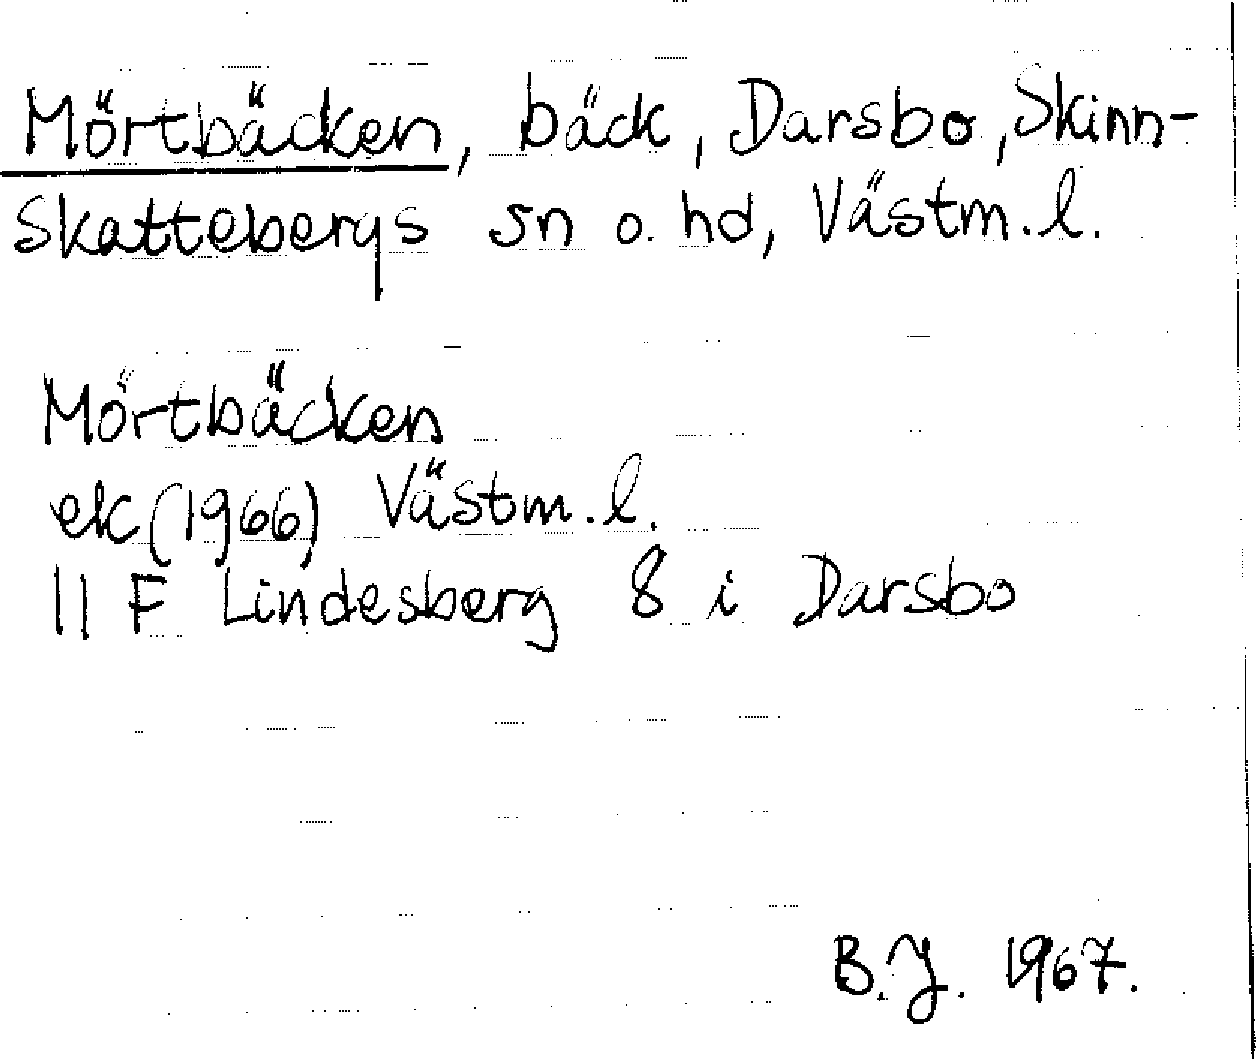 Mörtbäcken, bäck, Darsbo, Skinn-
Skattebergs sn o. hd, Västm. l.
Mörtbäcken
ek (1966) Västm. l.
11 F Lindesberg 8 i Darsbo
B.J. 1967.